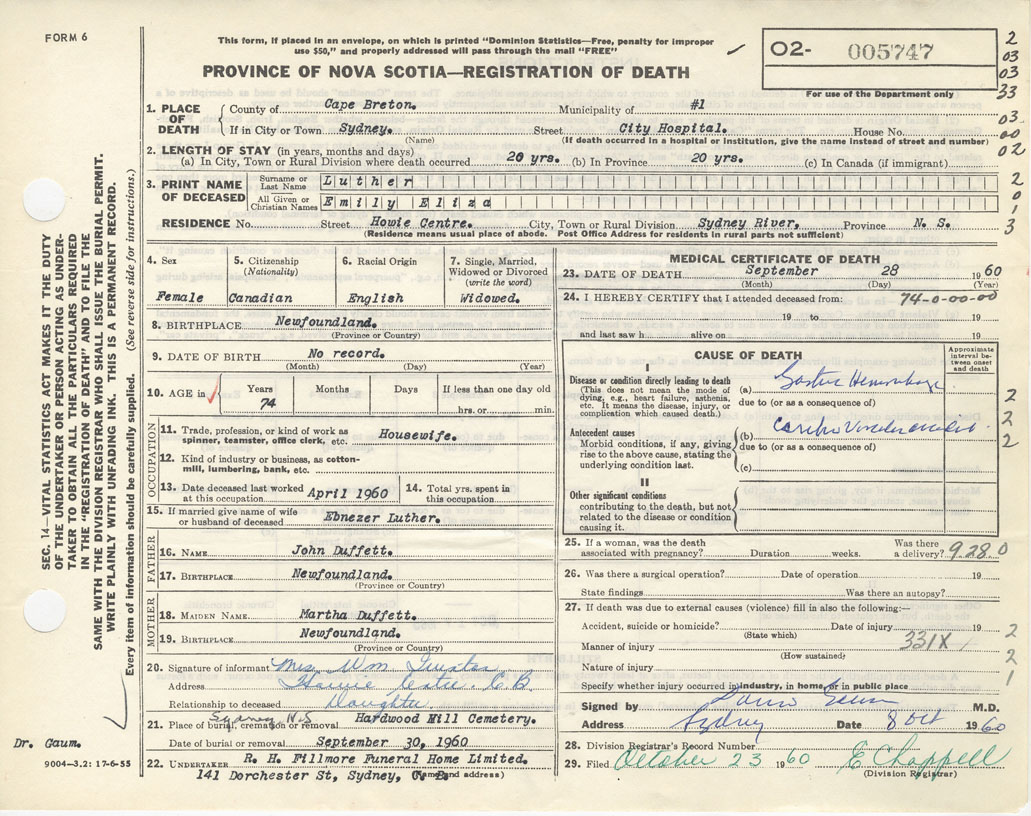 FORM 6
This form, if placed in an envelope, on which is printed "Dominion Statistics—Free, penalty for improper
use $50," and properly addressed will pass through the mail "FREE"
02- 005747
For use of the Department only
2
03
03
33
PROVINCE OF NOVA SCOTIA—REGISTRATION OF DEATH
1. PLACE OF DEATH
County of Cape Breton. Municipality of #1
If in City or Town Sydney. Street City Hospital. House No.
(Name) (If death occurred in a hospital or institution, give the name instead of street and number)
03
00
02
2. LENGTH OF STAY (in years, months and days)
(a) In City, Town or Rural Division where death occurred 20 yrs. (b) In Province 20 yrs. (c) In Canada (if immigrant)
3. PRINT NAME OF DECEASED
Surname or Last Name Luther
All Given or Christian Names Emily Eliza
2
0
1
3
RESIDENCE No. Street Howie Centre. City, Town or Rural Division Sydney River. Province N. S.
(Residence means usual place of abode. Post Office Address for residents in rural parts not sufficient)
4. Sex
Female
5. Citizenship
(Nationality)
Canadian
6. Racial Origin
English
7. Single, Married,
Widowed or Divorced
(write the word)
Widowed.
8. BIRTHPLACE Newfoundland.
(Province or Country)
9. DATE OF BIRTH No record.
(Month) (Day) (Year)
10. AGE in
Years Months Days If less than one day old
74
hrs. or min.
OCCUPATION
11. Trade, profession or kind of work as
spinner, teamster, office clerk, etc. Housewife.
12. Kind of industry or business, as cotton-
mill, lumbering, bank, etc.
13. Date deceased last worked
at this occupation April 1960
14. Total yrs. spent in
this occupation
15. If married give name of wife
or husband of deceased Ebnezer Luther.
FATHER
16. NAME John Duffett.
17. BIRTHPLACE Newfoundland.
(Province or Country)
MOTHER
18. MAIDEN NAME Martha Duffett.
19. BIRTHPLACE Newfoundland.
(Province or Country)
20. Signature of informant Mrs. Wm
Address Howie Centre. C.B
Relationship to deceased Daughter
21. Place of burial, cremation or removal Sydney N.S Hardwood Hill Cemetery.
Date of burial or removal September 30, 1960
22. UNDERTAKER R. H. Fillmore Funeral Home Limited.
141 Dorchester St, Sydney,
(Name and address)
MEDICAL CERTIFICATE OF DEATH
23. DATE OF DEATH September 28 1960
(Month) (Day) (Year)
24. I HEREBY CERTIFY that I attended deceased from: 74-0-00-00
19 to 19
and last saw h alive on 19
CAUSE OF DEATH
Approximate
interval be-
tween onset
and death
I
Disease or condition directly leading to death
(This does not mean the mode of
dying, e.g., heart failure, asthenia,
etc. It means the disease, injury, or
complication which caused death.)
(a)
due to (or as a consequence of)
Antecedent causes
Morbid conditions, if any, giving
rise to the above cause, stating the
underlying condition last.
(b)
due to (or as a consequence of)
(c)
2
2
2
II
Other significant conditions
contributing to the death, but not
related to the disease or condition
causing it.
25. If a woman, was the death
associated with pregnancy? Duration weeks. Was there
a delivery? 9280
26. Was there a surgical operation? Date of operation 19
State findings Was there an autopsy?
27. If death was due to external causes (violence) fill in also the following:—
Accident, suicide or homicide? Date of injury 19
(State which)
Manner of injury 331X
(How sustained)
Nature of injury
2
2
1
Specify whether injury occurred in industry, in home, or in public place
Signed by M.D.
Address Sydney Date 8 Oct 1960
28. Division Registrar's Record Number
29. Filed October 23 1960 E Chappell
(Division Registrar)
SEC. 14—VITAL STATISTICS ACT MAKES IT THE DUTY
OF THE UNDERTAKER OR PERSON ACTING AS UNDER-
TAKER TO OBTAIN ALL THE PARTICULARS REQUIRED
IN THE "REGISTRATION OF DEATH" AND TO FILE THE
SAME WITH THE DIVISION REGISTRAR WHO SHALL ISSUE THE BURIAL PERMIT.
WRITE PLAINLY WITH UNFADING INK. THIS IS A PERMANENT RECORD.
Every item of information should be carefully supplied. (See reverse side for instructions.)
Dr. Gaum.
9004—3.2: 17-6-55